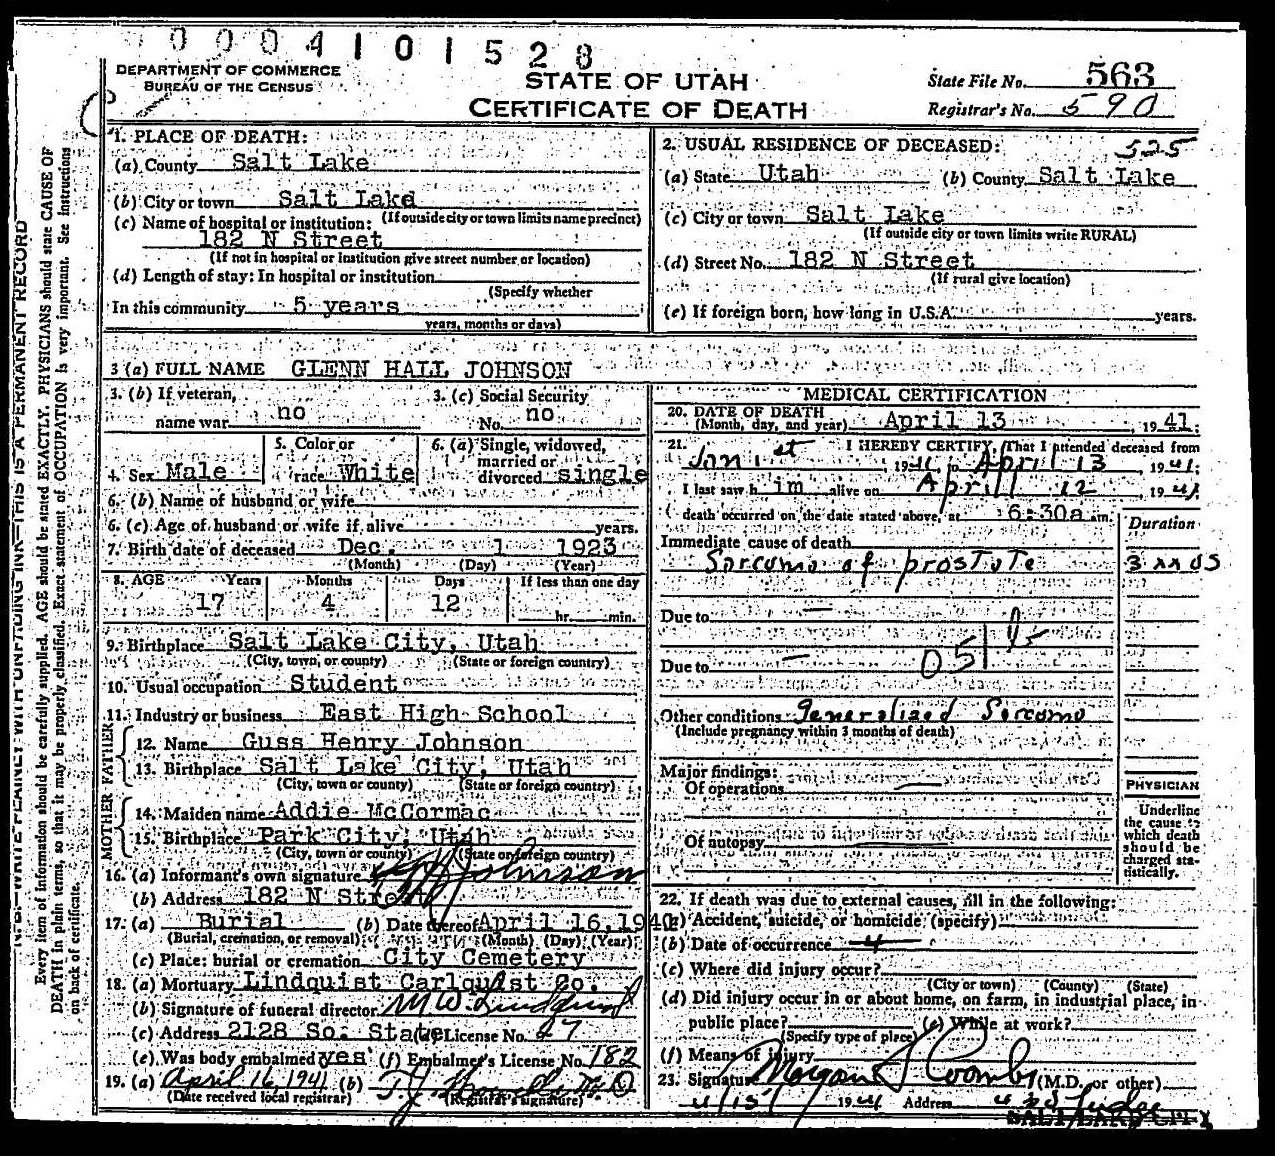 0004101528
DEPARTMENT OF COMMERCE
BUREAU OF THE CENSUS
STATE OF UTAH
CERTIFICATE OF DEATH
State File No. 563
Registrar's No. 590
N.B.—WRITE PLAINLY WITH UNFADING INK—THIS IS A PERMANENT RECORD
Every item of information should be carefully supplied. AGE should be stated EXACTLY. PHYSICIANS should state CAUSE OF
DEATH in plain terms, so that it may be properly classified. Exact statement of OCCUPATION is very important. See instructions
on back of certificate.
1. PLACE OF DEATH:
(a) County Salt Lake
(b) City or town Salt Lake
(If outside city or town limits name precinct)
(c) Name of hospital or institution:
182 N Street
(If not in hospital or institution give street number or location)
(d) Length of stay: In hospital or institution
(Specify whether
In this community 5 years
years, months or days)
2. USUAL RESIDENCE OF DECEASED: 525
(a) State Utah (b) County Salt Lake
(c) City or town Salt Lake
(If outside city or town limits write RURAL)
(d) Street No. 182 N Street
(If rural give location)
(e) If foreign born, how long in U.S.A. years.
3 (a) FULL NAME GLENN HALL JOHNSON
3. (b) If veteran, name war no
3. (c) Social Security No. no
4. Sex Male
5. Color or race White
6. (a) Single, widowed, married or divorced single
6. (b) Name of husband or wife
6. (c) Age of husband or wife if alive years.
7. Birth date of deceased Dec. 1 1923
(Month) (Day) (Year)
8. AGE Years Months Days If less than one day
17 4 12 hr. min.
9. Birthplace Salt Lake City, Utah
(City, town, or county) (State or foreign country)
10. Usual occupation Student
11. Industry or business East High School
FATHER
12. Name Guss Henry Johnson
13. Birthplace Salt Lake City, Utah
(City, town or county) (State or foreign country)
MOTHER
14. Maiden name Addie McCormac
15. Birthplace Park City, Utah
(City, town or county) (State or foreign country)
16. (a) Informant's own signature Johnson
(b) Address 182 N Street
17. (a) Burial (b) Date thereof April 16, 1941
(Burial, cremation, or removal) (Month) (Day) (Year)
(c) Place: burial or cremation City Cemetery
18. (a) Mortuary Lindquist Carlquist Co.
(b) Signature of funeral director M W. Lindquist
(c) Address 2128 So. State (d) License No. 27
(e) Was body embalmed? yes (f) Embalmer's License No. 182
19. (a) April 16, 1941 (b) T. J. Howells M.D
(Date received local registrar) (Registrar's signature)
MEDICAL CERTIFICATION
20. DATE OF DEATH
(Month, day, and year) April 13, 1941;
21. I HEREBY CERTIFY, That I attended deceased from
Jan 1st, 1941 to April 13 1941;
I last saw h im alive on April 12 1941
death occurred on the date stated above, at 6:30a m.
Duration
Immediate cause of death
Sarcoma of prostate 3 mos
Due to —
Due to — 051
Other conditions Generalized Sarcoma
(Include pregnancy within 3 months of death)
Major findings:
Of operations —
Of autopsy
PHYSICIAN
Underline the cause to which death should be charged statistically.
22. If death was due to external causes, fill in the following:
(a) Accident, suicide, or homicide (specify)
(b) Date of occurrence
(c) Where did injury occur?
(City or town) (County) (State)
(d) Did injury occur in or about home, on farm, in industrial place, in
public place? (e) While at work?
(Specify type of place)
(f) Means of injury
23. Signature Morgan S Coombs (M.D. or other)
4/15/ 1941 Address
SALT LAKE CITY